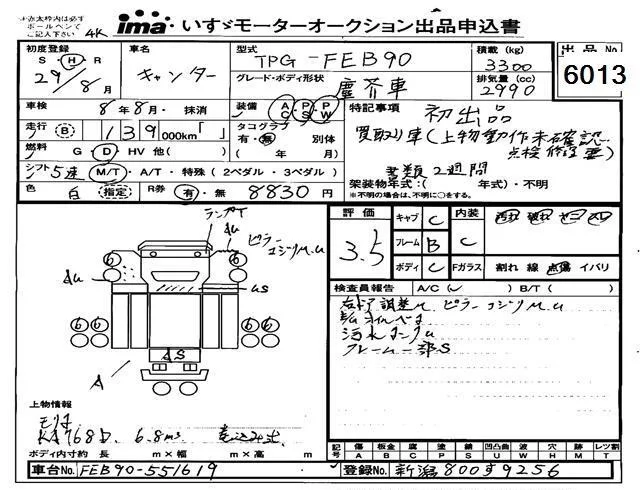 ※赤太枠内は必ず
ボールペンにて
ご記入下さい
4K
ima いすゞモーターオークション出品申込書
初度登録 S・H・R 29/8月
車名 キャンター
型式 TPG-FEB90
グレード・ボディ形状 塵芥車
積載(kg) 3300
排気量(cc) 2990
出品No 6013
車検 8年8月・抹消
走行 (B) 139000km「 」
燃料 G・D・HV 他( )
シフト 5速 M/T・A/T・特殊(2ペダル・3ペダル)
色 白 指定 R券 有・無 8830円
装備 AC PS PW
タコグラフ 有・無 別体
( 年 月)
特記事項 初出品
買取り車(上物動作未確認
点検修理要)
書類2週間
架装物年式:( 年式)・不明
※不明の場合は、不明に○をする。
ランプT
au
ピラー
コジリM.u
au
us
66
66
66
AS
A
評価 3.5
キャブ C
フレーム B
ボディ C
内装 C
Fガラス 割れ 線 点傷 イバリ
検査員報告 A/C(レ)・B/T( )
右ドア調整M ピラーコジリM.u
汚水タンクu
フレーム一部S
上物情報
KA768D. 6.8m³ 巻込み式
ボディ内寸約 長 m×幅 m×高 m
記号 傷A 板金B 腐C 塗P 錆S 凹凸曲U 波W 穴H 跡M レツ割T
車台No. FEB90-551619
登録No. 新潟800す9256